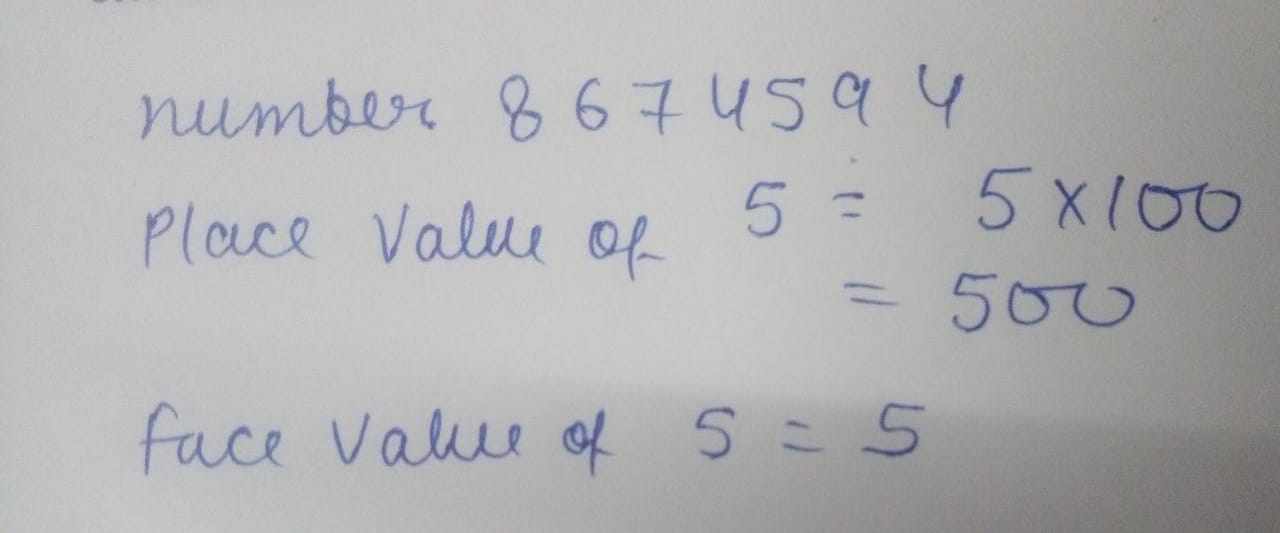 number 8674594
Place Value of 5 = 5×100
= 500
face Value of 5 = 5